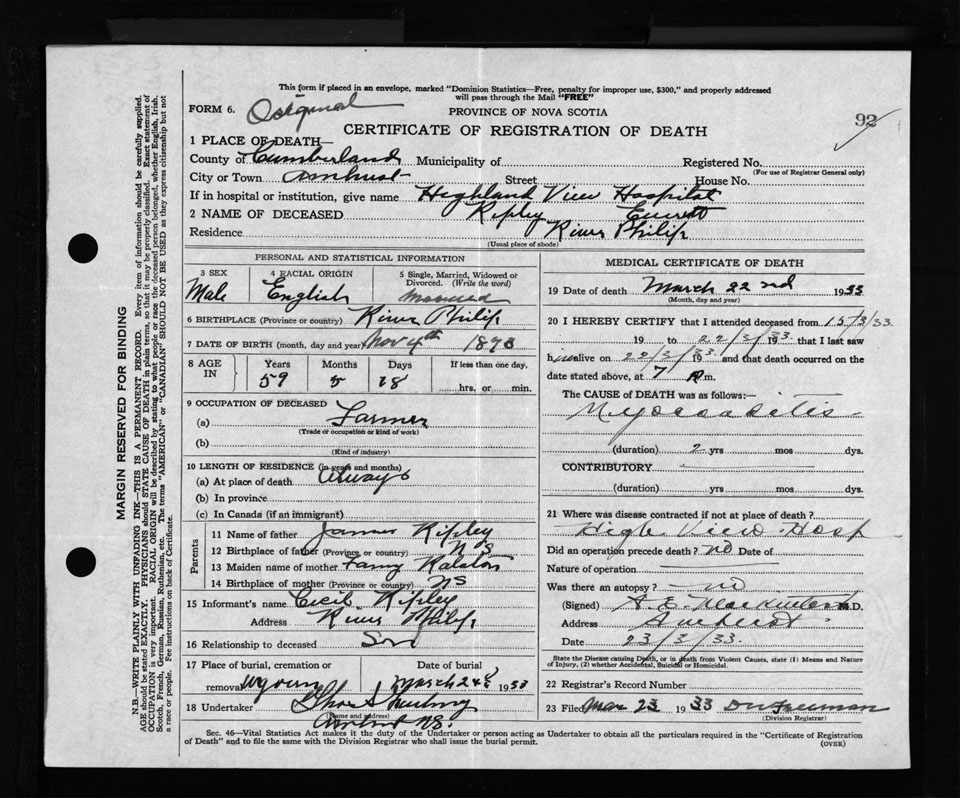 This form if placed in an envelope, marked "Dominion Statistics—Free, penalty for improper use, $300," and properly addressed
will pass through the Mail "FREE"
FORM 6. Original
PROVINCE OF NOVA SCOTIA
92
CERTIFICATE OF REGISTRATION OF DEATH
1 PLACE OF DEATH—
County of Cumberland Municipality of Registered No.
(For use of Registrar General only)
City or Town Amherst Street House No.
If in hospital or institution, give name Highland View Hospital
2 NAME OF DECEASED Ripley Everett
Residence River Philip
(Usual place of abode)
PERSONAL AND STATISTICAL INFORMATION
3 SEX 4 RACIAL ORIGIN 5 Single, Married, Widowed or
Divorced. (Write the word)
Male English Married
6 BIRTHPLACE (Province or country) River Philip
7 DATE OF BIRTH (month, day and year) Nov 4th 1873
8 AGE IN Years Months Days If less than one day,
59 18 hrs. or min.
9 OCCUPATION OF DECEASED
(a) Farmer
(Trade or occupation or kind of work)
(b)
(Kind of industry)
10 LENGTH OF RESIDENCE (in years and months)
(a) At place of death Always
(b) In province
(c) In Canada (if an immigrant)
Parents
11 Name of father James Ripley
12 Birthplace of father (Province or country) N S
13 Maiden name of mother Fanny Ralston
14 Birthplace of mother (Province or country) NS
15 Informant's name Cecil Ripley
Address River Philip
16 Relationship to deceased Son
17 Place of burial, cremation or Date of burial
removal March 24 1933
18 Undertaker
(Name and address)
Amherst NS.
MEDICAL CERTIFICATE OF DEATH
19 Date of death March 22nd 1933
(Month, day and year)
20 I HEREBY CERTIFY that I attended deceased from 15/3/33.
19 to 22/3/1933. that I last saw
him alive on 22/3/1933. and that death occurred on the
date stated above, at 7 m.
The CAUSE of DEATH was as follows:—
Myocarditis
(duration) 2 yrs mos dys.
CONTRIBUTORY
(duration) yrs mos dys.
21 Where was disease contracted if not at place of death?
High View Hosp
Did an operation precede death? no Date of
Nature of operation
Was there an autopsy? no
(Signed) A. E. M.D.
Address Amherst
Date 23/3/33.
State the Disease causing Death, or in death from Violent Causes, state (1) Means and Nature
of Injury, (2) whether Accidental, Suicidal or Homicidal.
22 Registrar's Record Number
23 Filed Mar 23 1933
(Division Registrar)
Sec. 46—Vital Statistics Act makes it the duty of the Undertaker or person acting as Undertaker to obtain all the particulars required in the "Certificate of Registration
of Death" and to file the same with the Division Registrar who shall issue the burial permit.
(OVER)
MARGIN RESERVED FOR BINDING
N.B.—WRITE PLAINLY WITH UNFADING INK—THIS IS A PERMANENT RECORD. Every item of information should be carefully supplied.
AGE should be stated EXACTLY. PHYSICIANS should STATE CAUSE OF DEATH in plain terms, so that it may be properly classified. Exact statement of
OCCUPATION is very important. RACIAL ORIGIN will be described by stating to what people or race the deceased person belonged, whether English, Irish,
Scotch, French, German, Russian, Ruthenian, etc. The terms "AMERICAN" or "CANADIAN" SHOULD NOT BE USED as they express citizenship but not
a race or people. Fee instructions on back of Certificate.